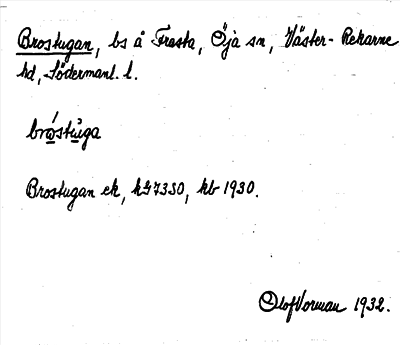 Brostugan, bs å Frasta, Öja sn, Väster-Rekarne
hd, Södermanl. l.
bro̱stu̱ga
Brostugan ek, hS7330, kb 1930.
Olof Vorman 1932.